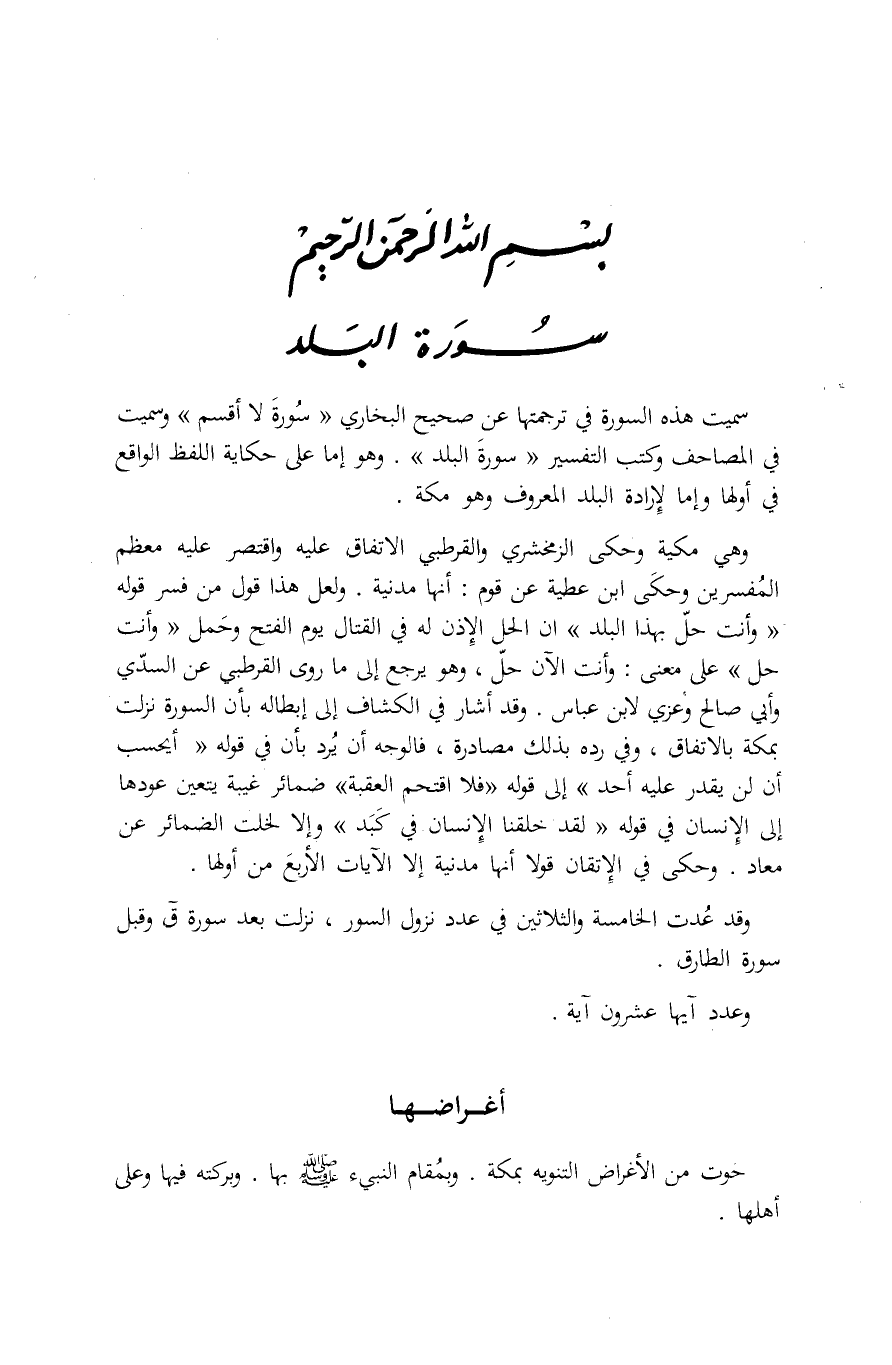 بسم الله الرحمن الرحيم
سُورَة البَلد
سميت هذه السورة في ترجمتها عن صحيح البخاري « سُورةَ لا أقسم » وسميت
في المصاحف وكتب التفسير « سورةَ البلد » . وهو إما على حكاية اللفظ الواقع
في أولها وإما لإِرادة البلد المعروف وهو مكة .
وهي مكية وحكى الزمخشري والقرطبي الاتفاق عليه واقتصر عليه معظم
المُفسرين وحكَى ابن عطية عن قوم : أنها مدنية . ولعل هذا قول من فسر قوله
« وأنت حلّ بهذا البلد » ان الحل الإِذن له في القتال يوم الفتح وحَمل « وأنت
حل » على معنى : وأنت الآن حلّ ، وهو يرجع إلى ما روى القرطبي عن السدّي
وأبي صالح وعزي لابن عباس . وقد أشار في الكشاف إلى إبطاله بأن السورة نزلت
بمكة بالاتفاق ، وفي رده بذلك مصادرة ، فالوجه أن يُرد بأن في قوله « أيحسب
أن لن يقدر عليه أحد » إلى قوله «فلا اقتحم العقبة» ضمائر غيبة يتعين عودها
إلى الإِنسان في قوله « لقد خلقنا الإِنسان في كَبَد » وإلا لخلت الضمائر عن
معاد . وحكى في الإِتقان قولا أنها مدنية إلا الآيات الأربعَ من أولها .
وقد عُدت الخامسة والثلاثين في عدد نزول السور ، نزلت بعد سورة قۤ وقبل
سورة الطارق .
وعدد آيها عشرون آية .
أغـراضـهـا
حوت من الأغراض التنويه بمكة . وبمُقام النبيء ﷺ بها . وبركته فيها وعلى
أهلها .